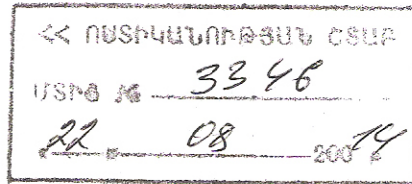 ՀՀ ՈՍՏԻԿԱՆՈՒԹՅԱՆ ՇՏԱԲ
ՄՏԻՑ № 3346
«22» 08 200 14 թ